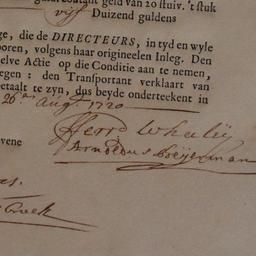 contant geld van 20 stuiv. 't stuk
vijf Duizend guldens
ge, die de DIRECTEURS, in tyd en wyle
ooren, volgens haar origineelen Inleg. Den
elve Actie op die Conditie aan te nemen,
egen : den Transportant verklaart van
etaalt te zyn, dus beyde onderteekent in
26 Augt 1720
vene
Arnoldus